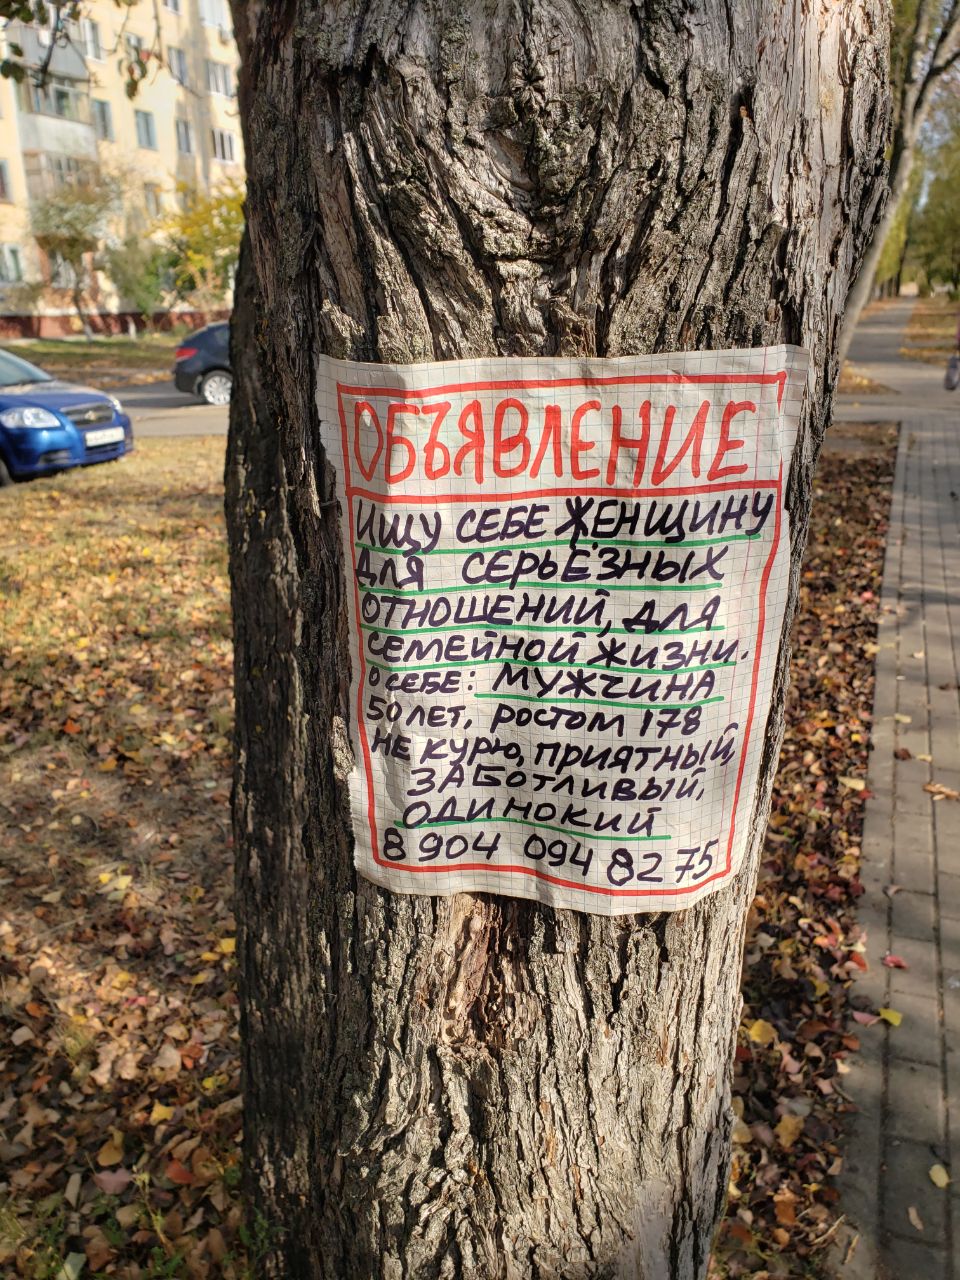 ОБЪЯВЛЕНИЕ
ИЩУ СЕБЕ ЖЕНЩИНУ
ДЛЯ СЕРЬЁЗНЫХ
ОТНОШЕНИЙ, ДЛЯ
СЕМЕЙНОЙ ЖИЗНИ.
О СЕБЕ: МУЖЧИНА
50 ЛЕТ, РОСТОМ 178
НЕ КУРЮ, ПРИЯТНЫЙ,
ЗАБОТЛИВЫЙ,
ОДИНОКИЙ
8 904 094 82 75